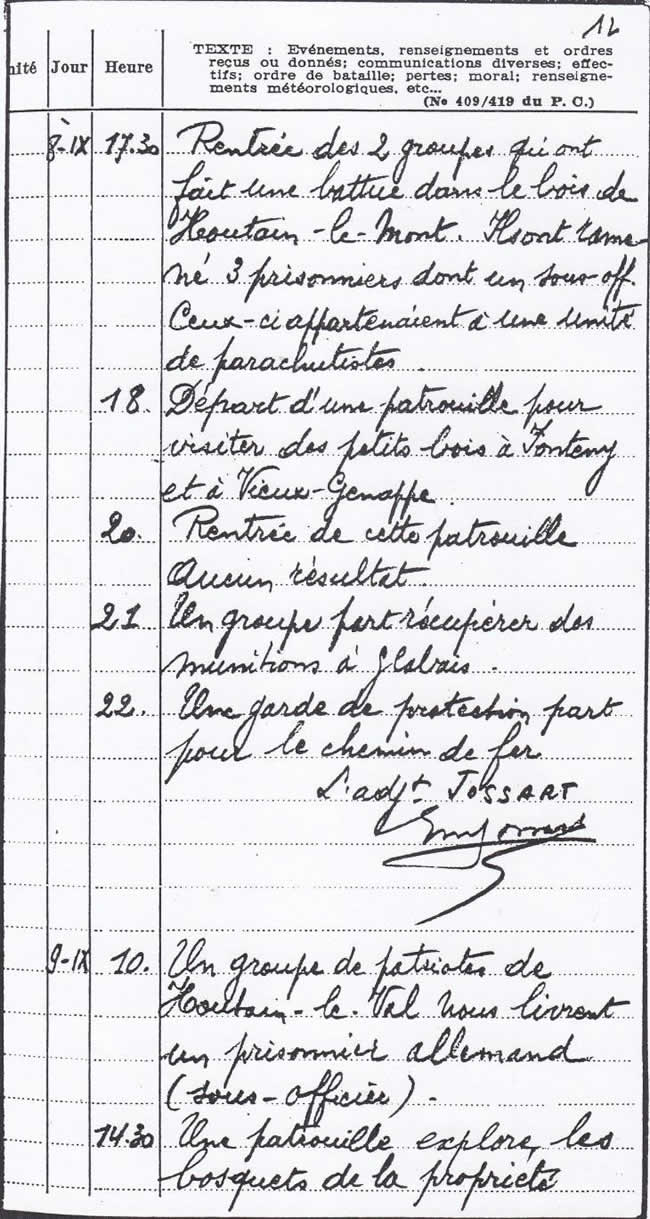 12
nité Jour Heure TEXTE : Evénements, renseignements et ordres
reçus ou donnés; communications diverses; effec-
tifs; ordre de bataille; pertes; moral; renseigne-
ments météorologiques, etc...
(No 409/419 du P. C.)
8-IX 17.30 Rentrée des 2 groupes qui ont
fait une battue dans le bois de
Houtain-le-Mont. Ils ont rame-
né 3 prisonniers dont un sous-off.
Ceux-ci appartenaient à une unité
de parachutistes.
18. Départ d'une patrouille pour
visiter des petits bois à Fonteny
et à Vieux-Genappe.
20. Rentrée de cette patrouille
Aucun résultat.
21 Un groupe part récupérer des
munitions à Glabais.
22. Une garde de protection part
pour le chemin de fer
L'adjt JOSSART
9-IX 10. Un groupe de patriotes de
Houtain-le-Val nous livrent
un prisonnier allemand
(sous-officier).
14.30 Une patrouille explore les
bosquets de la propriété